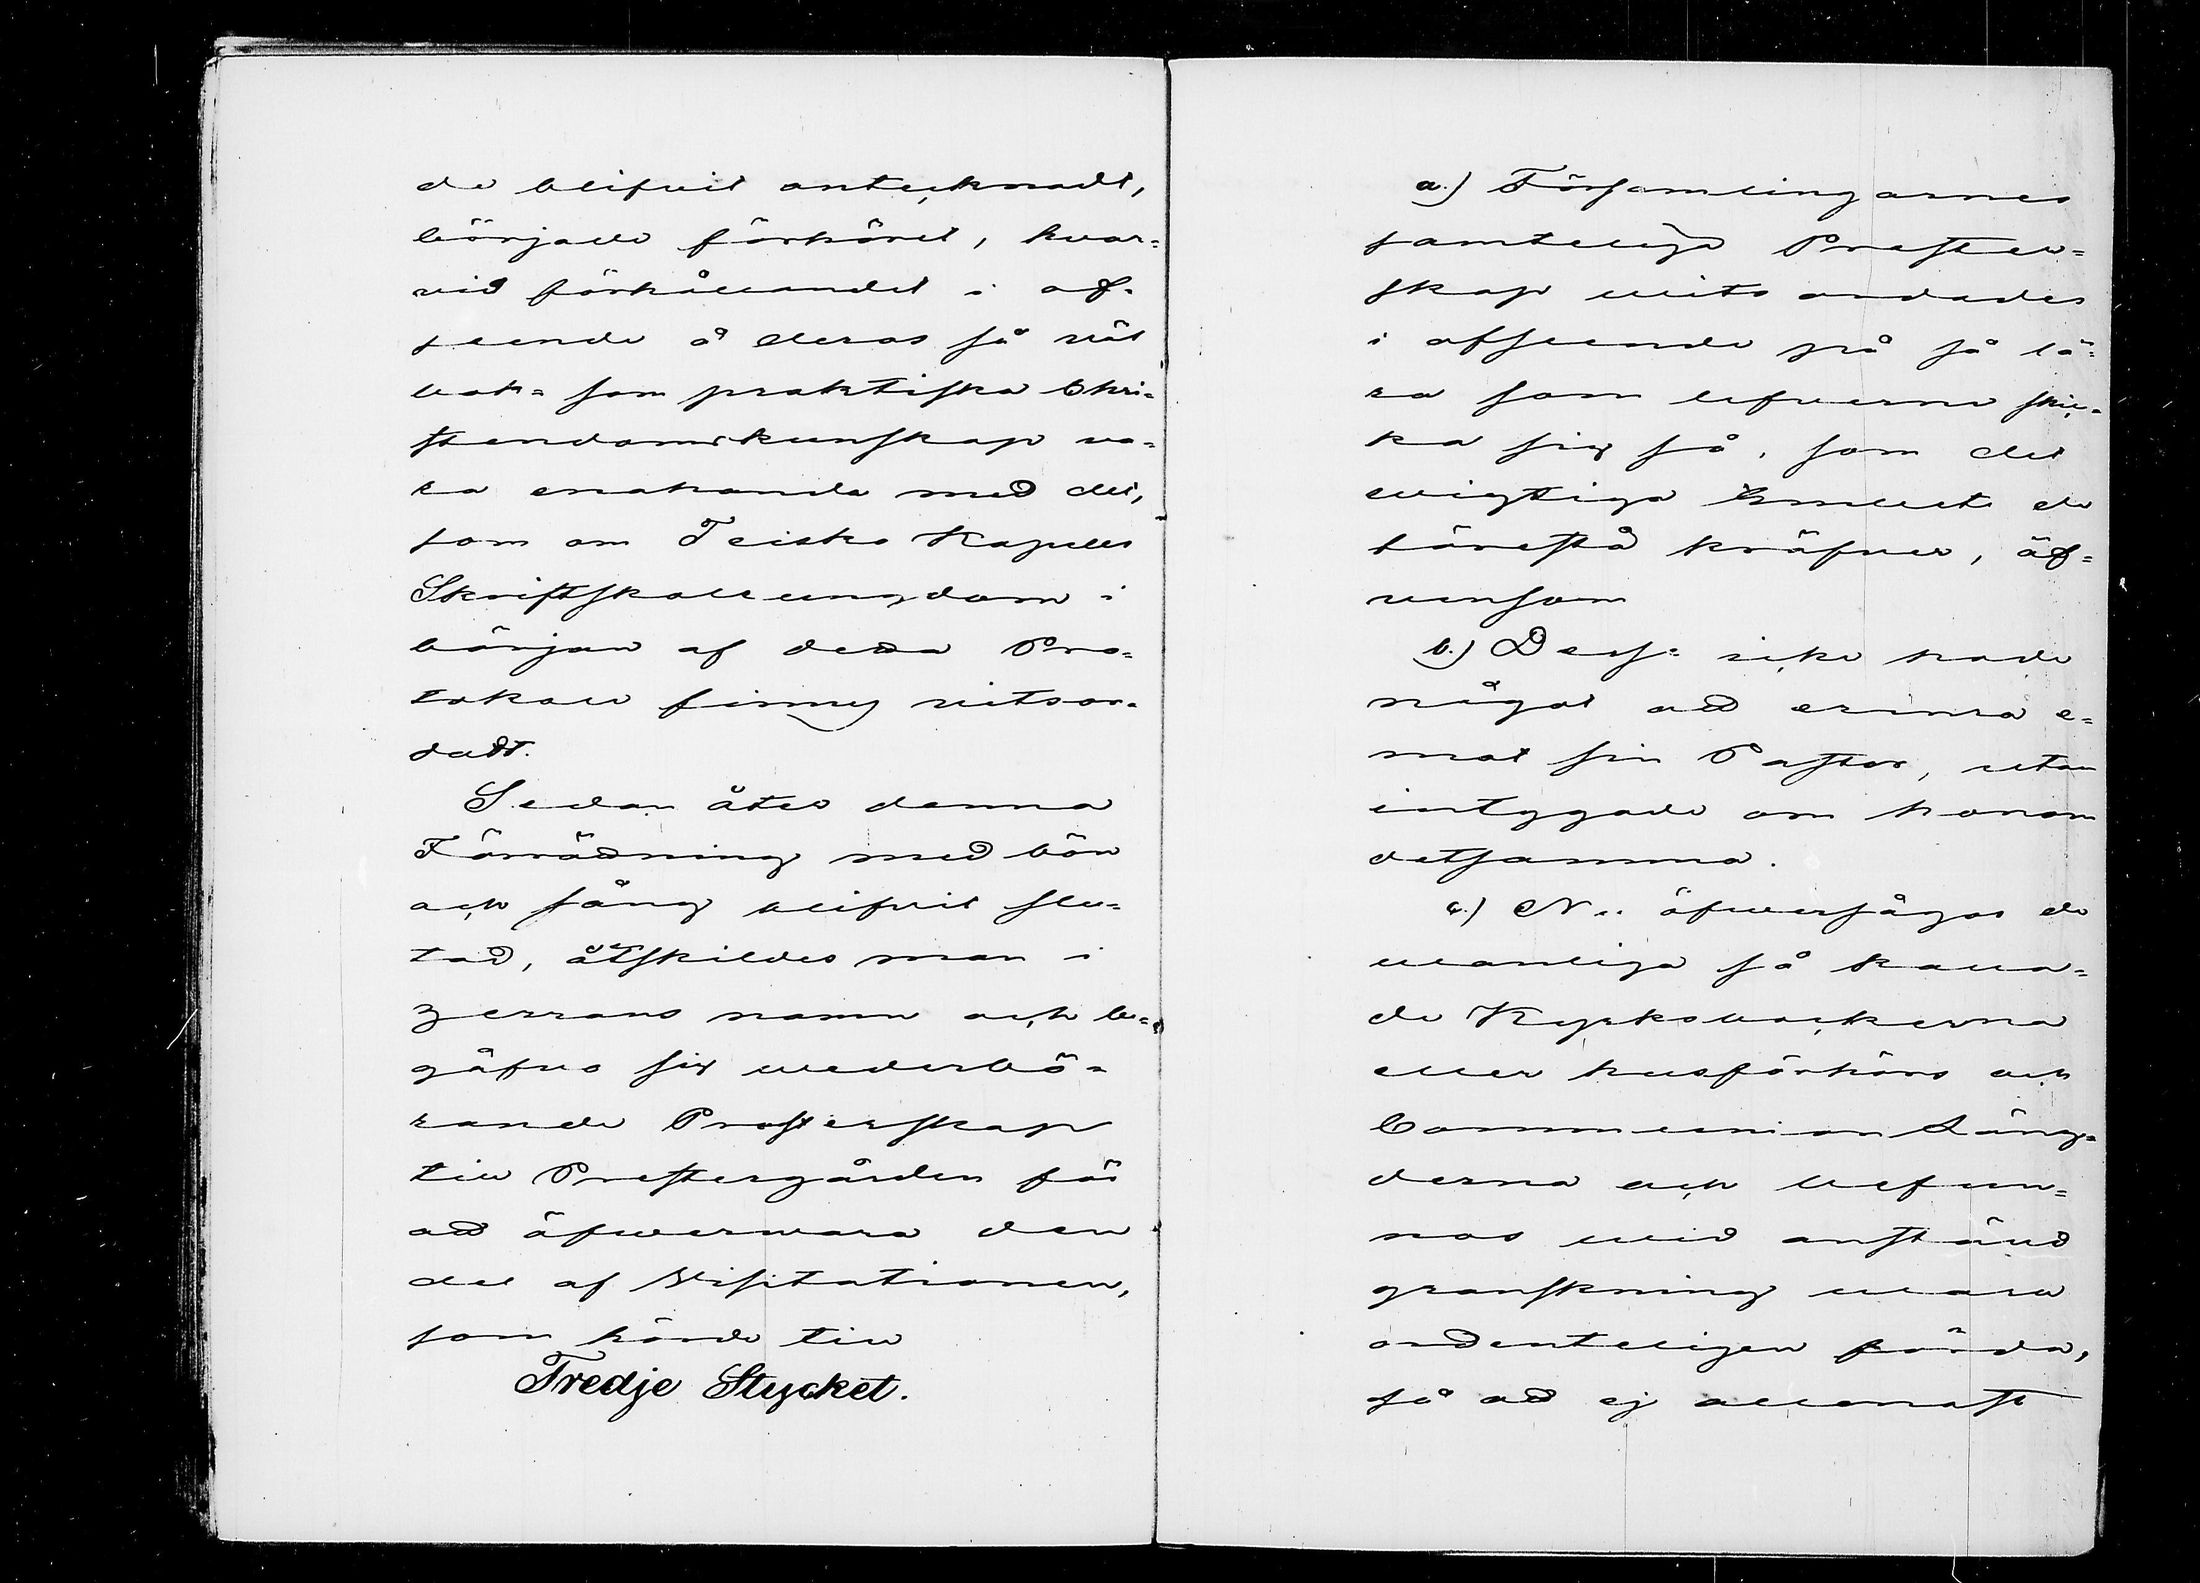 de blifvit anteçknadt,
började förhöret, hvar=
vid förhållandet i af=
seende å deras så väl
bok= som praktiska Chri=
stendomskunskap va=
ra enahanda med det,
som om Teisko Kapells
Skriftskoleungdom i
början af detta Pro=
tokoll finnes vitsor=
dadt.
Sedan åter denna
Förrädning med bön
och sång blifvit slu=
tad, åtskildes man i
Herrans namn och be=
gåfvo sig wederbö=
rande Presterskap
till Prestergården för
att öfwerwara den
del af Visitationen,
som hörde till
Tredje Stycket.
a.) Församlingarnes
samteliga Prester=
skap witsordades
i afseende på så lä=
ra som lefverne skic=
ka sig så, som det
wigtiga Embete de
förestå kräfver, äf=
vensom
b.) Dess= icke hade
något att erinra e=
mot sin Pastor, utan
intygade om honom
detsamma.
c.) Nu öfwersågos de
wanliga så kalla=
de Kyrkoböckerna
eller husförhörs och
Communion Läng=
derna och befun=
nos wid anstäld
granskning wara
ordenteligen förda,
så att ej allenast